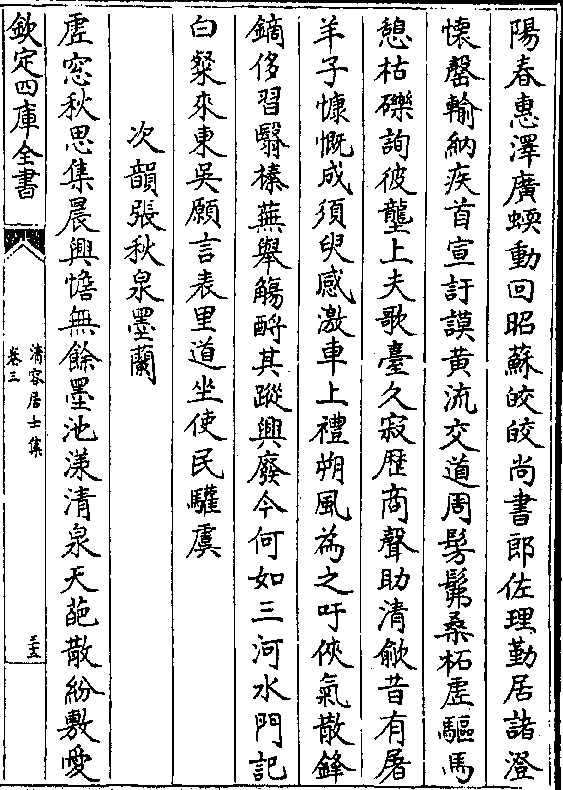 陽春惠澤廣蝡動回昭蘇皎皎尚書郎佐理勤居諸澄
懷罄輸納疾首宣訏謨黄流交道周髣髴桑柘虚驅馬
憩枯礫詢彼壟上夫歌臺久寂歴商聲助清歈昔有屠
羊子慷慨成須臾感激車上禮朔風為之吁俠氣散鋒
鏑侈習翳榛蕪舉觴酹其蹤興廢今何如三河水門記
白粲來東吳願言表里道坐使民驩虞
次韻張秋泉墨蘭
虚窓秋思集晨興憺無餘墨池漾清泉天葩散紛敷愛
欽定四庫全書
清容居士集
卷三